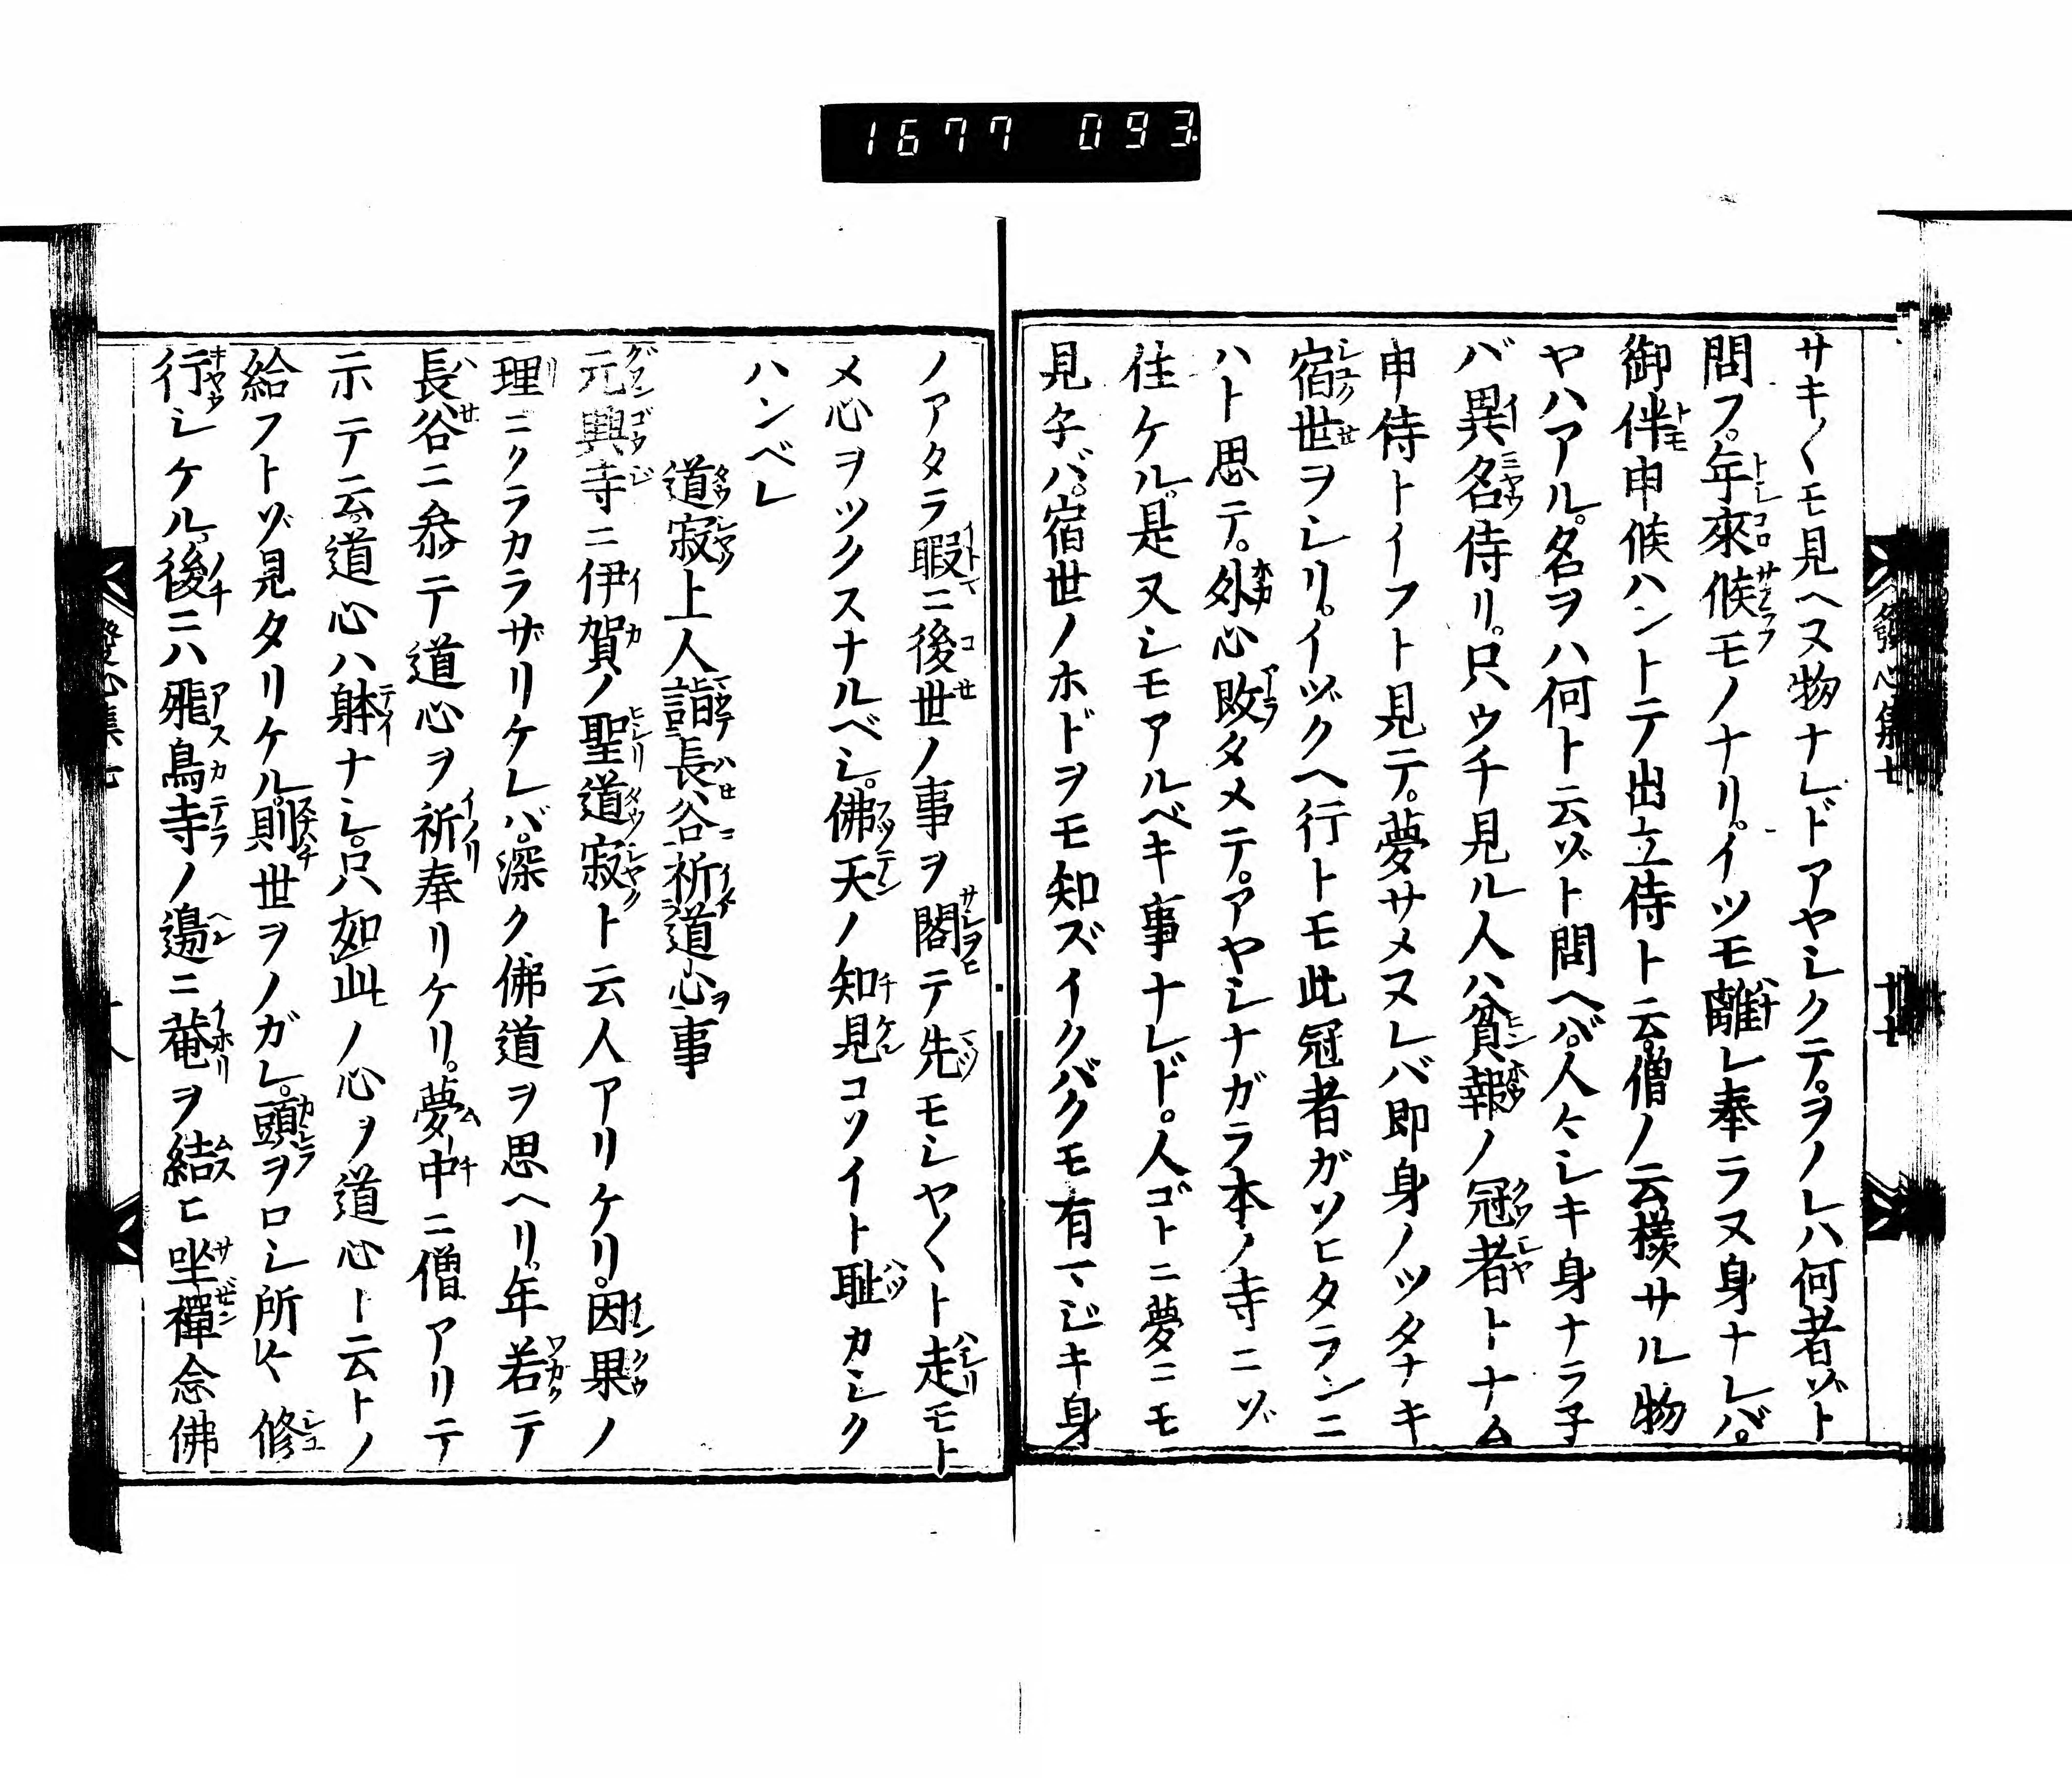 1677 093
サキ〱モ見ヘヌ物ナレドアヤシクテ。ヲノレハ何者ゾト
問フ。年來候モノナリ。イツモ離レ奉ラヌ身ナレバ。
御伴申候ハントテ出立侍ト云。僧ノ云樣サル物
ヤハアル。名ヲハ何ト云ゾト問ヘバ。人々シキ身ナラ子
バ異名侍リ。只ウチ見ル人ハ貧報ノ冠者トナム
申侍トイフト見テ。夢サメヌレバ即身ノツタナキ
宿世ヲシリ。イヅクヘ行トモ此冠者ガソヒタランニ
ハト思テ。外心敗タメテ。アヤシナガラ本ノ寺ニゾ
住ケル。是又シモアルベキ事ナレド。人ゴトニ夢ニモ
見子バ。宿世ノホドヲモ知ズイクバクモ有マジキ身
發心集七
十七
ノアタラ暇ニ後世ノ事ヲ閣テ先モシヤ〱ト走モト
メ心ヲツクスナルベシ。佛天ノ知見コソイト耻カシク
ハンベレ
道寂上人詣長谷祈道心事
元興寺ニ伊賀ノ聖道寂ト云人アリケリ。因果ノ
理ニクラカラザリケレバ。深ク佛道ヲ思ヘリ。年若テ
長谷ニ叅テ道心ヲ祈奉リケリ。夢中ニ僧アリテ
示テ云。道心ハ躰ナシ。只如此ノ心ヲ道心ト云トノ
給フトゾ見タリケル。則世ヲノガレ。頭ヲロシ所々修
行シケル。後ニハ飛鳥寺ノ邊ニ菴ヲ結ヒ坐禪念佛